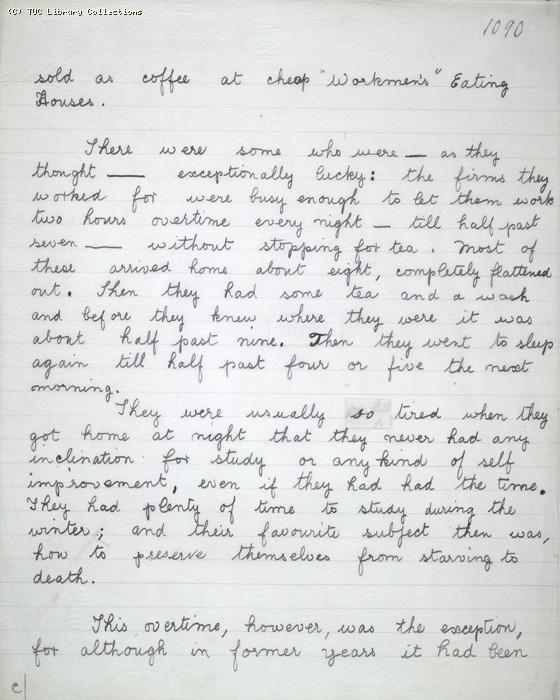 (C) TUC Library Collections
1090
sold as coffee at cheap "Workmen's" Eating
Houses.
There were some who were — as they
thought — exceptionally lucky: the firms they
worked for were busy enough to let them work
two hours overtime every night — till half past
seven — without stopping for tea. Most of
these arrived home about eight, completely flattened
out. Then they had some tea and a wash
and before they knew where they were it was
about half past nine. Then they went to sleep
again till half past four or five the next
morning.
They were usually so tired when they
got home at night that they never had any
inclination for study or any kind of self
improvement, even if they had had the time.
They had plenty of time to study during the
winter; and their favourite subject then was,
how to preserve themselves from starving to
death.
This overtime, however, was the exception,
for although in former years it had been